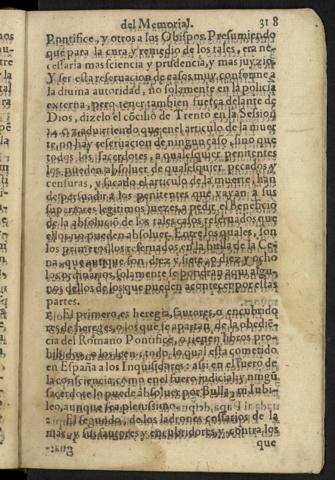 del Memorial. 318
Pontifice, y otros a los Obispos. Presumiendo
que para la cura y remedio de los tales, era ne-
cessaria mas sciencia y prudencia, y mas juyzio.
Y ser esta reseruacion de casos muy conforme a
la diuina autoridad, no solamente en la policia
externa, pero tener tambien fuerça delante de
Dios, dizelo el cõcilio de Trento en la Session
14. aduirtiendo que en el articulo de la muer
te, no hay reseruacion de ningun caso, sino que
todos los sacerdotes, a qualesquier penitentes
los pueden absoluer de qualesquier pecados y
censuras, y sacado el articulo de la muerte, han
de persuadir a los penitentes que vayan a sus
superiores legitimos juezes a pedir el Beneficio
de la absolucion de los tales casos reseruados que
ellos no pueden absoluer. Entre los quales, son
los primeros los reseruados en la bulla de la Ce-
na, que aunque son diez y siete o diez y ocho
los ordinarios, solamente se pondran aqui algu-
nos dellos de los que pueden acontecer por estas
partes.
El primero, es heregia, fautores, o encubrido
res de hereges, o los que se apartan de la obediẽ-
cia del Romano Pontifice, o tienen libros pro-
hibidos, o los leen: todo lo qual esta cometido
en España a los Inquisidores: assi en el fuero de
la consciencia, como en el fuero judicial, y ningũ
sacerdote lo puede absoluer por Bulla, ni Iubi-
leo, aunque sea plenissimo.
El segundo, de los ladrones cossarios de la
mar, y sus fautores y encubridores, y contra los
que